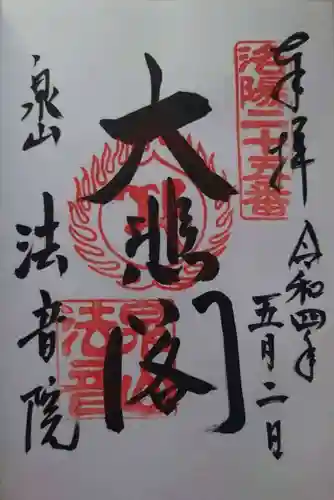 奉拝
令和四年
五月二日
洛陽二十五番
大悲閣
泉山
法音院